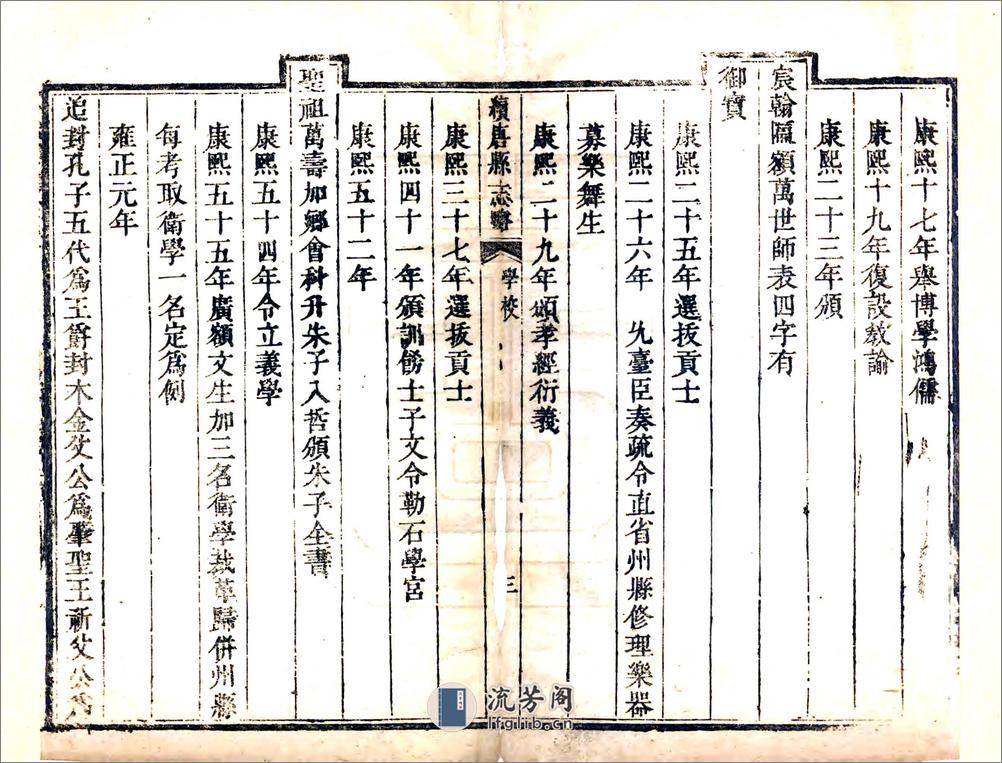 康熙十七年舉博學鴻儒
康熙十九年復設教諭
康熙二十三年頒
宸翰匾額萬世師表四字有
御寶
康熙二十五年選拔貢士
康熙二十六年 九臺臣奏疏令直省州縣修理樂器
募樂舞生
康熙二十九年頒孝經衍義
續唐縣志畧 學校 三
康熙三十七年選拔貢士
康熙四十一年頒訓飭士子文令勒石學宮
康熙五十二年
聖祖萬壽加鄉會科升朱子入哲頒朱子全書
康熙五十四年令立義學
康熙五十五年廣額文生加三名衛學裁革歸併州縣
每考取衛學一名定爲例
雍正元年
追封孔子五代爲王爵封木金父公爲肇聖王祈父公爲
流芳阁
lfglib.cn